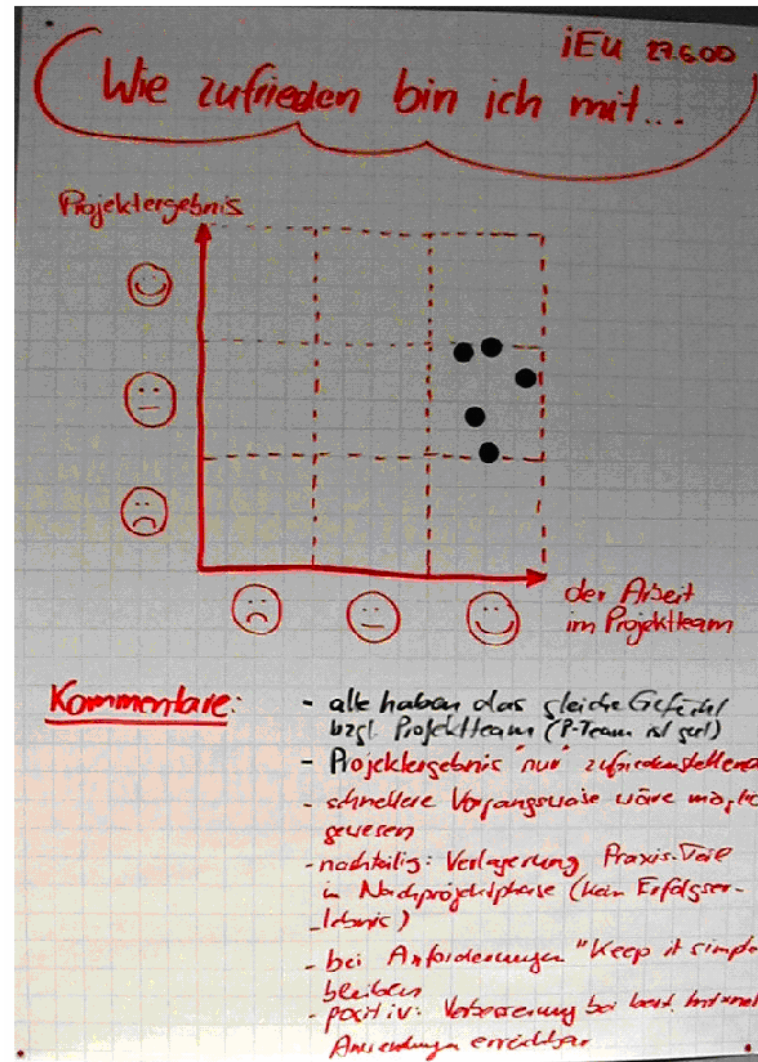 iEU 27.6.00
Wie zufrieden bin ich mit...
Projektergebnis
der Arbeit
im Projektteam
Kommentare:
- alle haben das gleiche Gefühl
bzgl. Projektteam (P-Team ist gut)
- Projektergebnis "nur" zufriedenstellend
- schnellere Vorgangsweise wäre möglic
gewesen
- nachteilig: Verlagerung Praxis-Teil
in Nachprojektphase (kein Erfolgser-
lebnis)
- bei Anforderungen "Keep it simple
bleiben
- positiv: Verbesserung bei best.
Anwendungen erreichbar